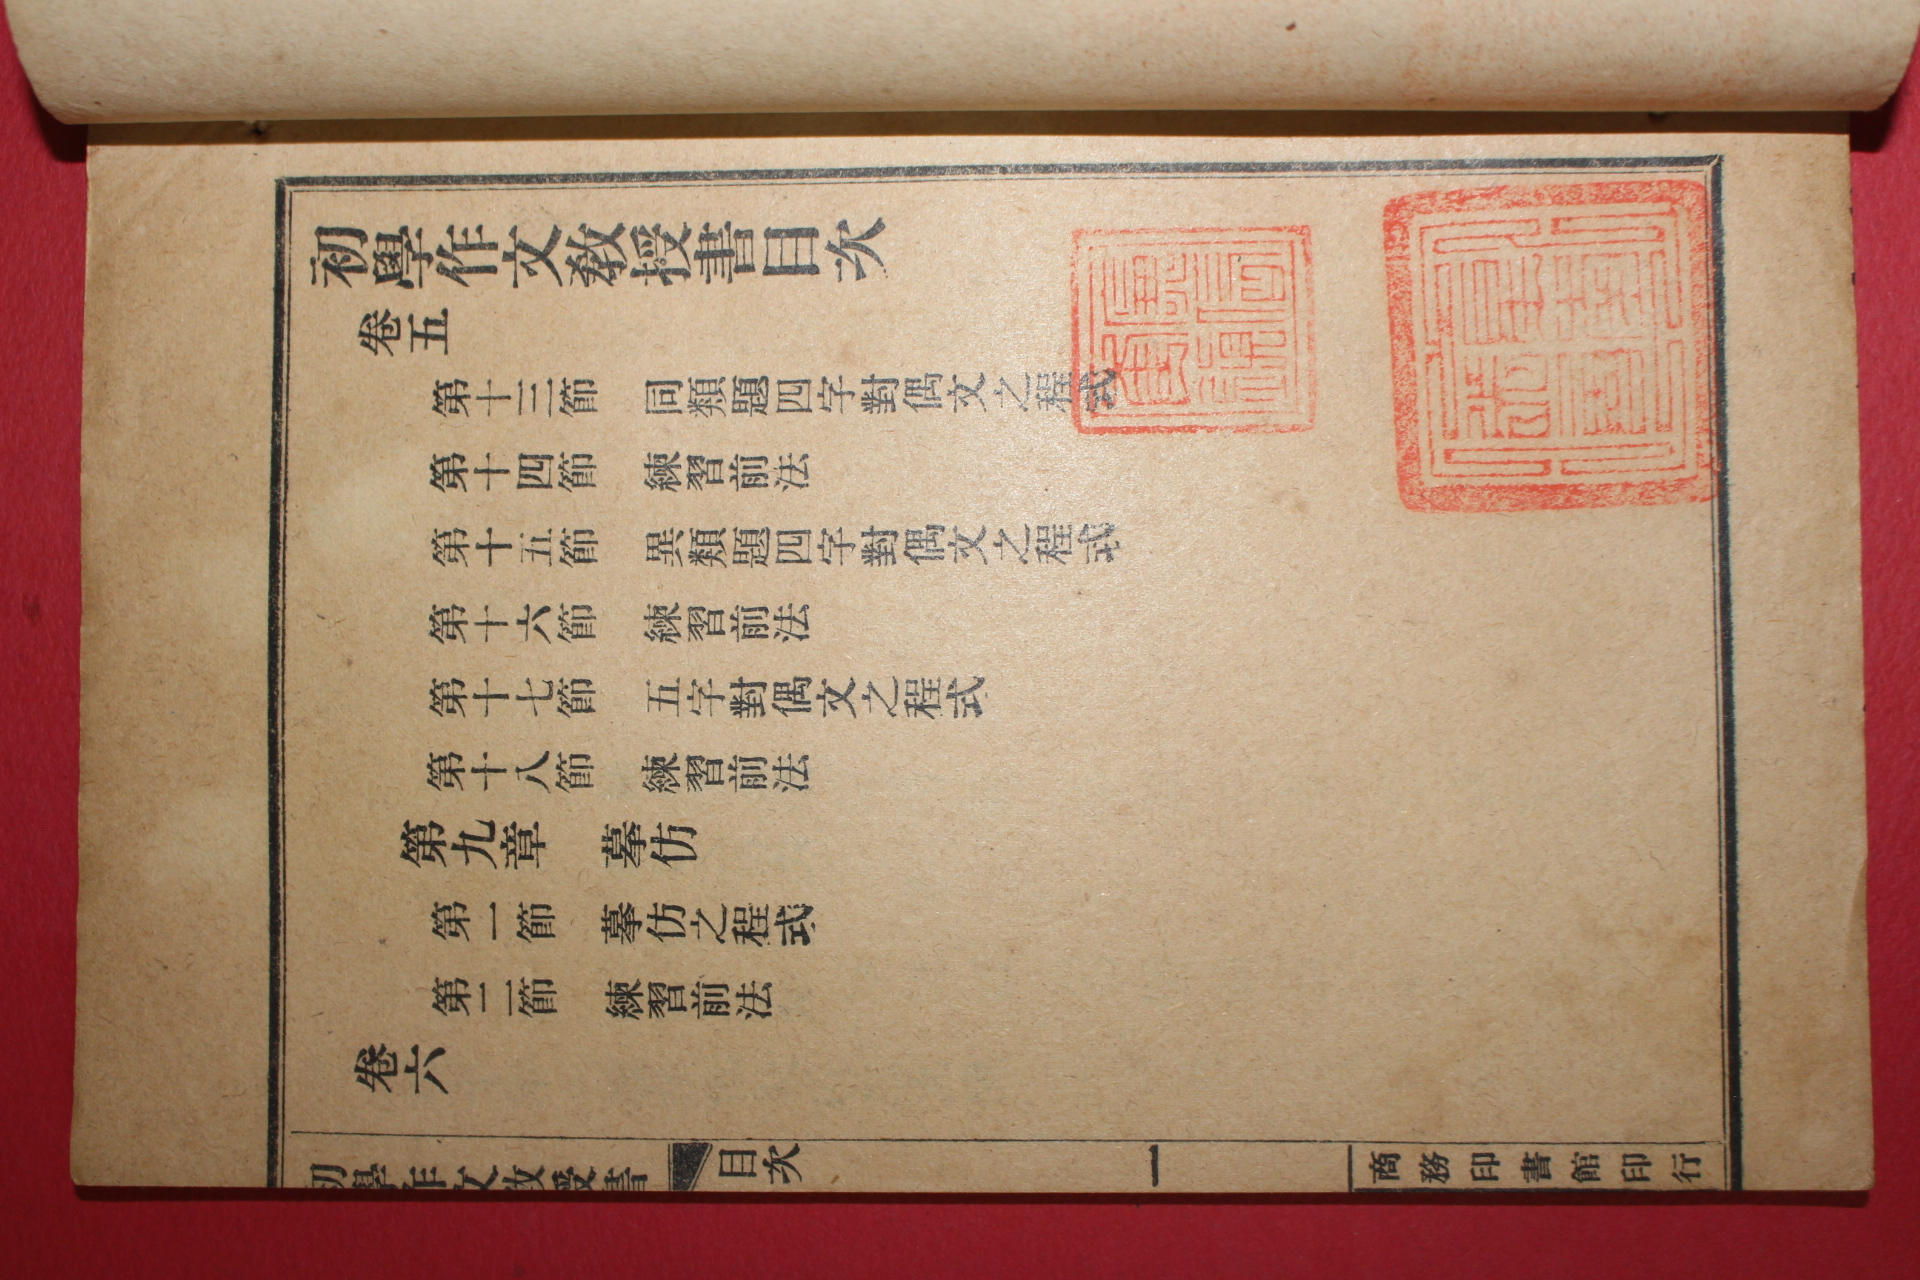 初學作文教授書目次
卷五
第十三節　同類題四字對偶文之程式
第十四節　練習前法
第十五節　異類題四字對偶文之程式
第十六節　練習前法
第十七節　五字對偶文之程式
第十八節　練習前法
第九章　摹仿
第一節　摹仿之程式
第二節　練習前法
卷六
初學作文教授書　目次　一　商務印書館印行